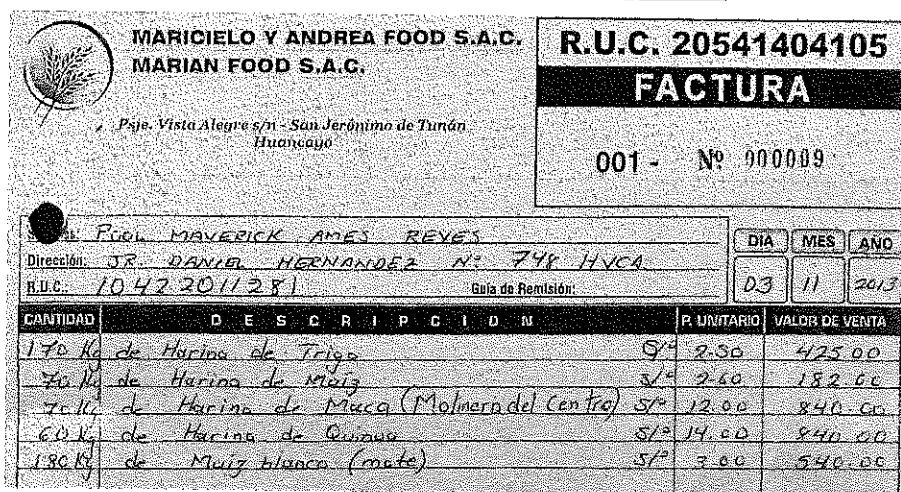 MARICIELO Y ANDREA FOOD S.A.C.
MARIAN FOOD S.A.C.
Psje. Vista Alegre s/n - San Jerónimo de Tunán
Huancayo
R.U.C. 20541404105
FACTURA
001 - Nº 000009
POOL MAVERICK AMES REYES
Dirección: JR. DANIEL HERNANDEZ Nº 748 HVCA
R.U.C.: 10422011281 Guía de Remisión:
DIA MES AÑO
03 11 2013
CANTIDAD DESCRIPCION P. UNITARIO VALOR DE VENTA
170 Kg de Harina de Trigo S/. 2.50 425.00
70 Kg de Harina de Maíz S/. 2.60 182.00
70 Kg de Harina de Maca (Molinera del Centro) S/. 12.00 840.00
60 Kg de Harina de Quinua S/. 14.00 840.00
180 Kg de Maiz blanco (mote) S/. 3.00 540.00